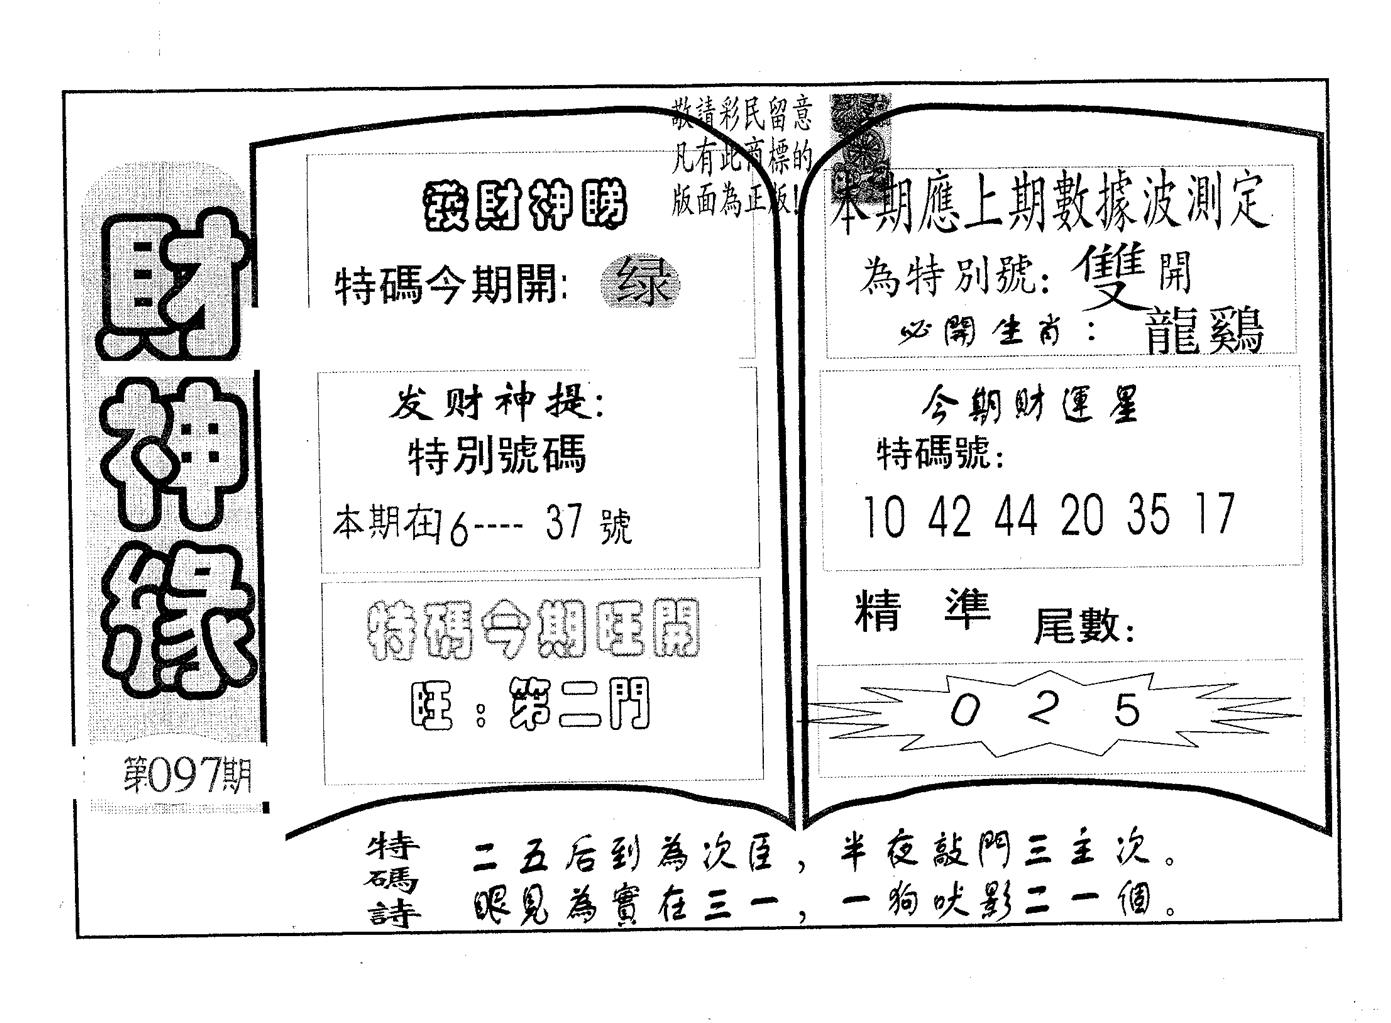 財神緣
第097期
敬請彩民留意
凡有此商標的
版面為正版!
發財神睇
特碼今期開: 绿
发财神提:
特別號碼
本期在16---- 37 號
特碼今期旺開
旺:第二門
本期應上期數據波測定
為特別號: 雙 開
必開生肖: 龍鷄
今期財運星
特碼號:
10 42 44 20 35 17
精 準 尾數:
0 2 5
特碼詩
二五后到為次臣,半夜敲門三主次。
眼見為實在三一,一狗吠影二一個。